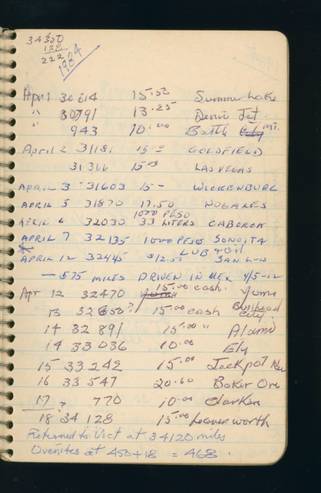 34350
130
222
1984
April 30614 15.50 Summer Lake
" 30791 13.25 Denio Jct.
" 943 10.00 Battle Mt.
April 2 31181 15 = GOLDFIELD
31366 15.00 LAS VEGAS
APRIL 3 31603 15 - WICKENBURG
APRIL 5 31870 17.50 NOGALES
1000 PESO
APRIL 6 32030 33 LITERS CABORCA
APRIL 7 32135 1000 PESO SONOITA
LUB + OIL
APRIL 12 32445 $12.50 SAN LUIS
— 575 MILES DRIVEN IN MEX 4/5-12
Apr 12 32470 15.00 cash. Yuma
13 32650 15.00 cash Bullhead City
14 32891 15.00 " Alamo
14 33036 10.00 Ely
15 33242 15.00 Jackpot Nev
16 33547 20.60 Baker Ore
17 ? 770 10.00 Clarken
18 34128 15.00 Leavenworth
Returned to Vict at 34120 miles
Overites at 450+18 = 468.